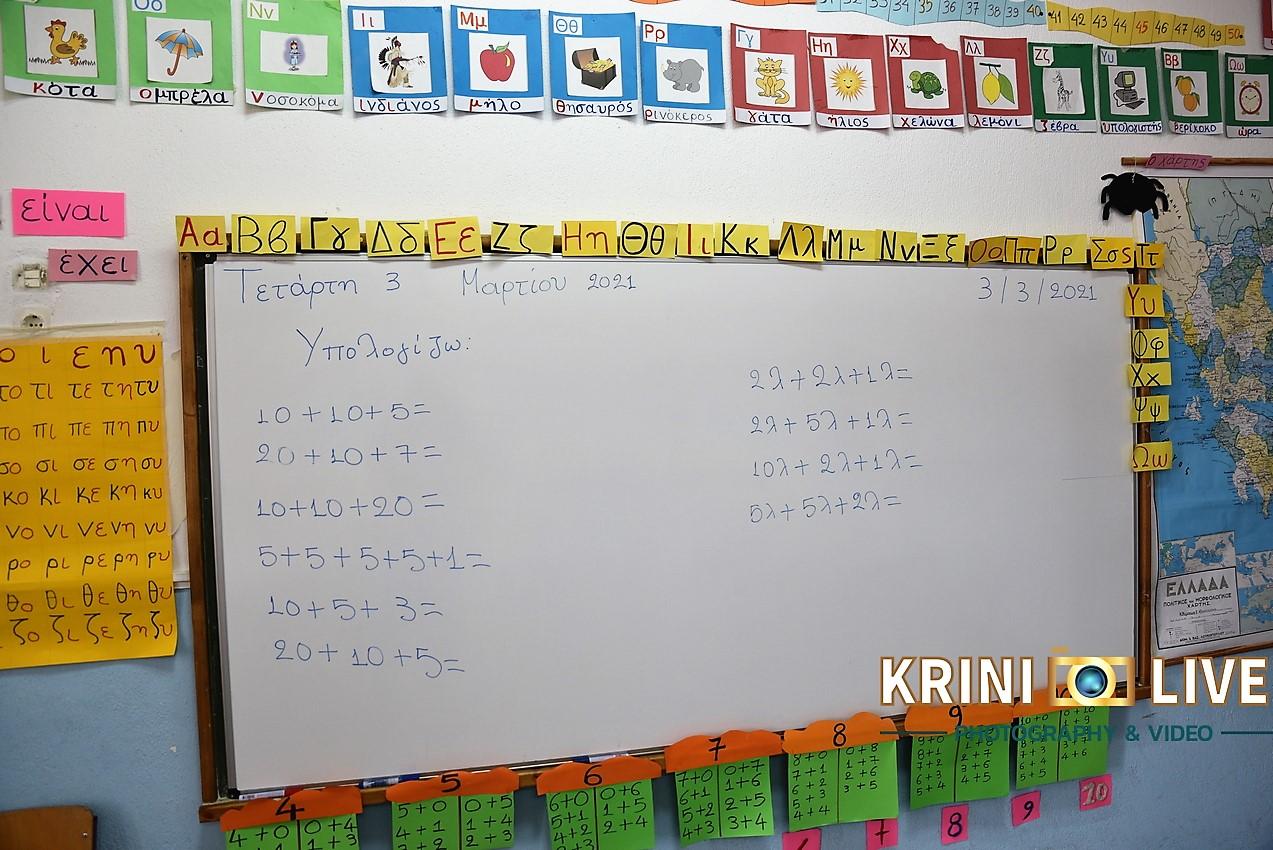 Οο
Νν
Ιι
Μμ
Θθ
Ρρ
Γγ
Ηη
Χχ
Λλ
Ζζ
Υυ
Ββ
Ωω
35 36 37 38 39 40 41 42 43 44 45 46 47 48 49 50
κότα
ομπρέλα
νοσοκόμα
ινδιάνος
μήλο
θησαυρός
ρινόκερος
γάτα
ήλιος
χελώνα
λεμόνι
ζέβρα
υπολογιστής
βερίκοκο
ώρα
ο χάρτης
είναι
έχει
Αα Ββ Γγ Δδ Εε Ζζ Ηη Θθ Ιι Κκ Λλ Μμ Νν Ξξ Οο Ππ Ρρ Σσς Ττ
Υυ
Φφ
Χχ
Ψψ
Ωω
Τετάρτη 3 Μαρτίου 2021
3/3/2021
Υπολογίζω:
10+10+5=
20+10+7=
10+10+20=
5+5+5+5+1=
10+5+3=
20+10+5=
2λ+2λ+1λ=
2λ+5λ+1λ=
10λ+2λ+1λ=
5λ+5λ+2λ=
ο ι ε η υ
το τι τε τη τυ
πο πι πε πη πυ
σο σι σε ση συ
κο κι κε κη κυ
νο νι νε νη νυ
ρο ρι ρε ρη ρυ
θο θι θε θη θυ
ζο ζι ζε ζη ζυ
ΕΛΛΑΔΑ
ΠΟΛΙΤΙΚΟΣ και ΜΟΡΦΟΛΟΓΙΚΟΣ
ΧΑΡΤΗΣ
KRINI LIVE
PHOTOGRAPHY & VIDEO
4
4+0 0+4
5
5+0 0+5
4+1 1+4
3+2 2+3
6
6+0 0+6
5+1 1+5
4+2 2+4
3+3
7
7+0 0+7
6+1 1+6
5+2 2+5
4+3 3+4
8
8+0 0+8
7+1 1+7
6+2 2+6
5+3 3+5
4+4
9
9+0 0+9
8+1 1+8
7+2 2+7
6+3 3+6
5+4 4+5
10+0 0+10
1+9
7+3
6+4 4+6
5+5
7
8
9
10